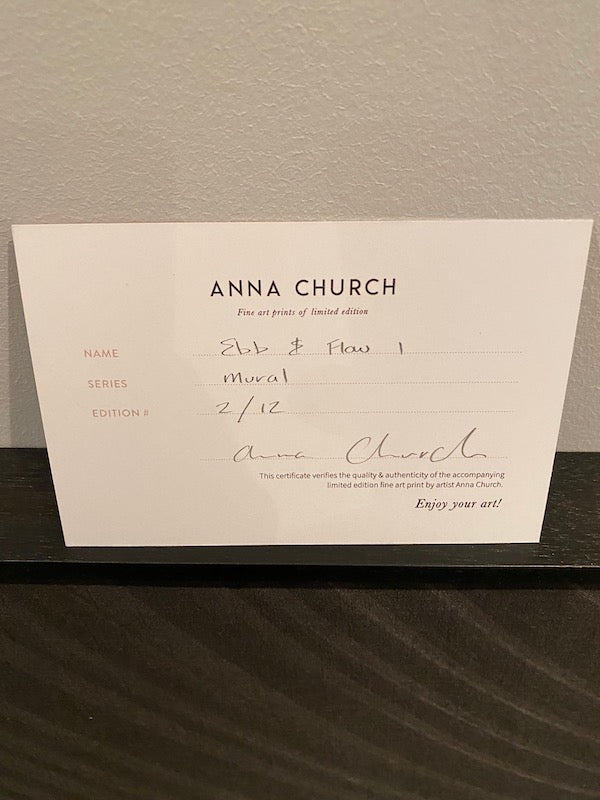 ANNA CHURCH
Fine art prints of limited edition
NAME Ebb & Flow 1
SERIES Mural
EDITION # 2/12
Anna Church
This certificate verifies the quality & authenticity of the accompanying
limited edition fine art print by artist Anna Church.
Enjoy your art!